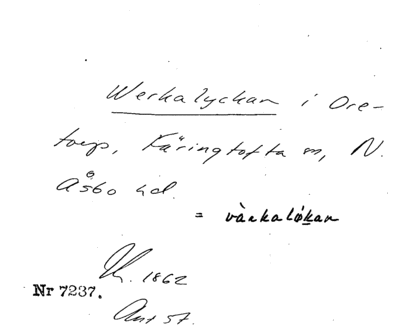 Werkalyckan i Ore-
torp, Färingtofta sn, N.
Åsbo hd.
= vàrkalø̀kan
Nr 7237.
1862
Ant 57.